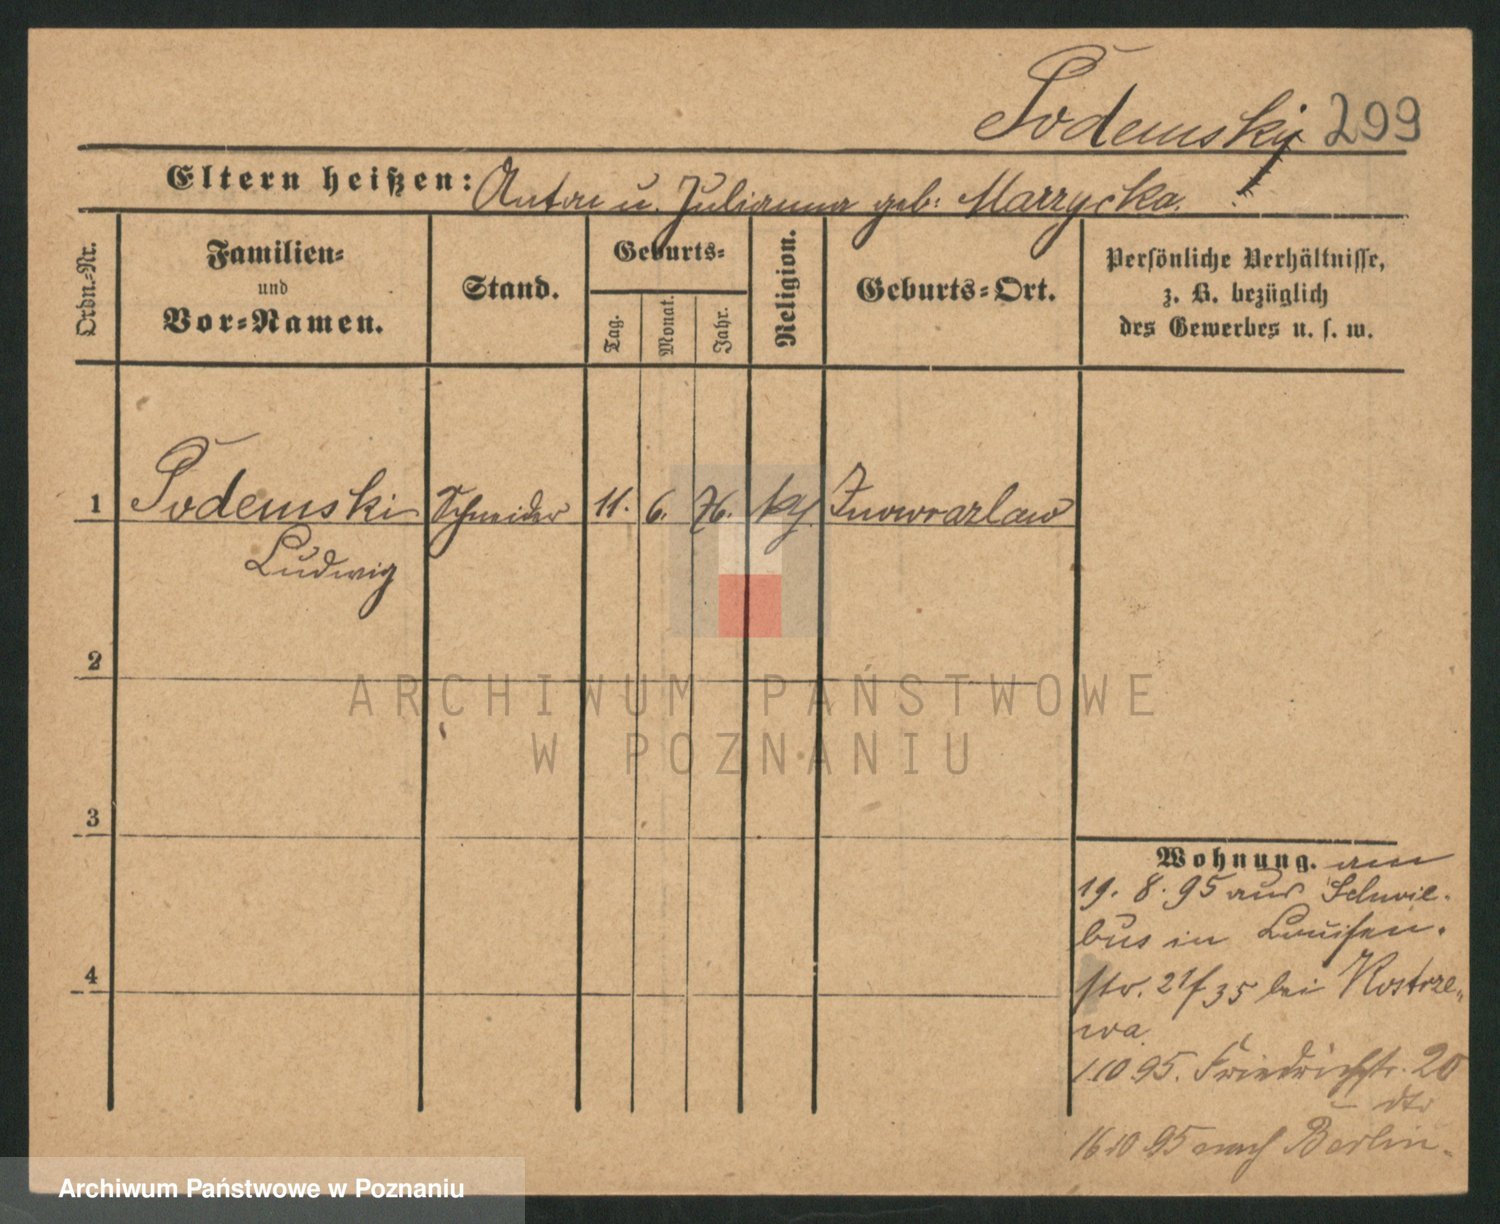 Podemski 299
Eltern heißen: Anton u. Julianna geb. Marzycka.
Ordn.-Nr.
Familien- und Vor-Namen.
Stand.
Geburts-
Tag.
Monat.
Jahr.
Religion.
Geburts-Ort.
Persönliche Verhältnisse,
z. B. bezüglich
des Gewerbes u. s. w.
1 Podemski Schneider 11. 6. 76. Inowrazlaw
Ludwig
2
ARCHIWUM PAŃSTWOWE
W POZNANIU
3
Wohnung. am
19. 8. 95 aus Schwie-
bus in Louisen-
str. 21/35 bei Kostrze-
wa
1.10 95. Friedrichstr. 20
4
16.10 95 nach Berlin.
Archiwum Państwowe w Poznaniu